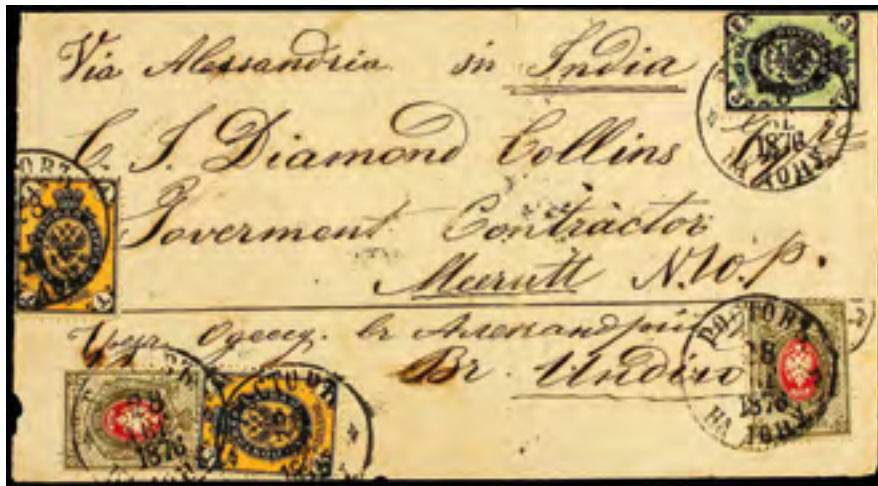 Via Alessandria in India
C. J. Diamond Collins
Goverment Contractor
Meerutt N.W.P.
Чрез Одессу въ Александрію
Въ Индію
1876
НА ДОНУ
РОСТОВЪ
28
1876
НА ДОНУ
28
1876
1876